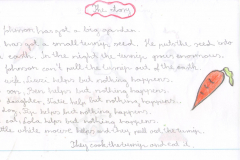 The story
has got a big garden
has got a small turnip seed. He puts the seed into
earth. In the night the turnip grows enormous.
can't pull the turnip out of the earth
wife, helps but nothing happens.
son, helps but nothing happens.
daughter, Katie helps but nothing happens.
dog, helps but nothing happens.
cat, helps but nothing happens.
The white mouse helps and they pull out the turnip.
They cook the turnip and eat it.